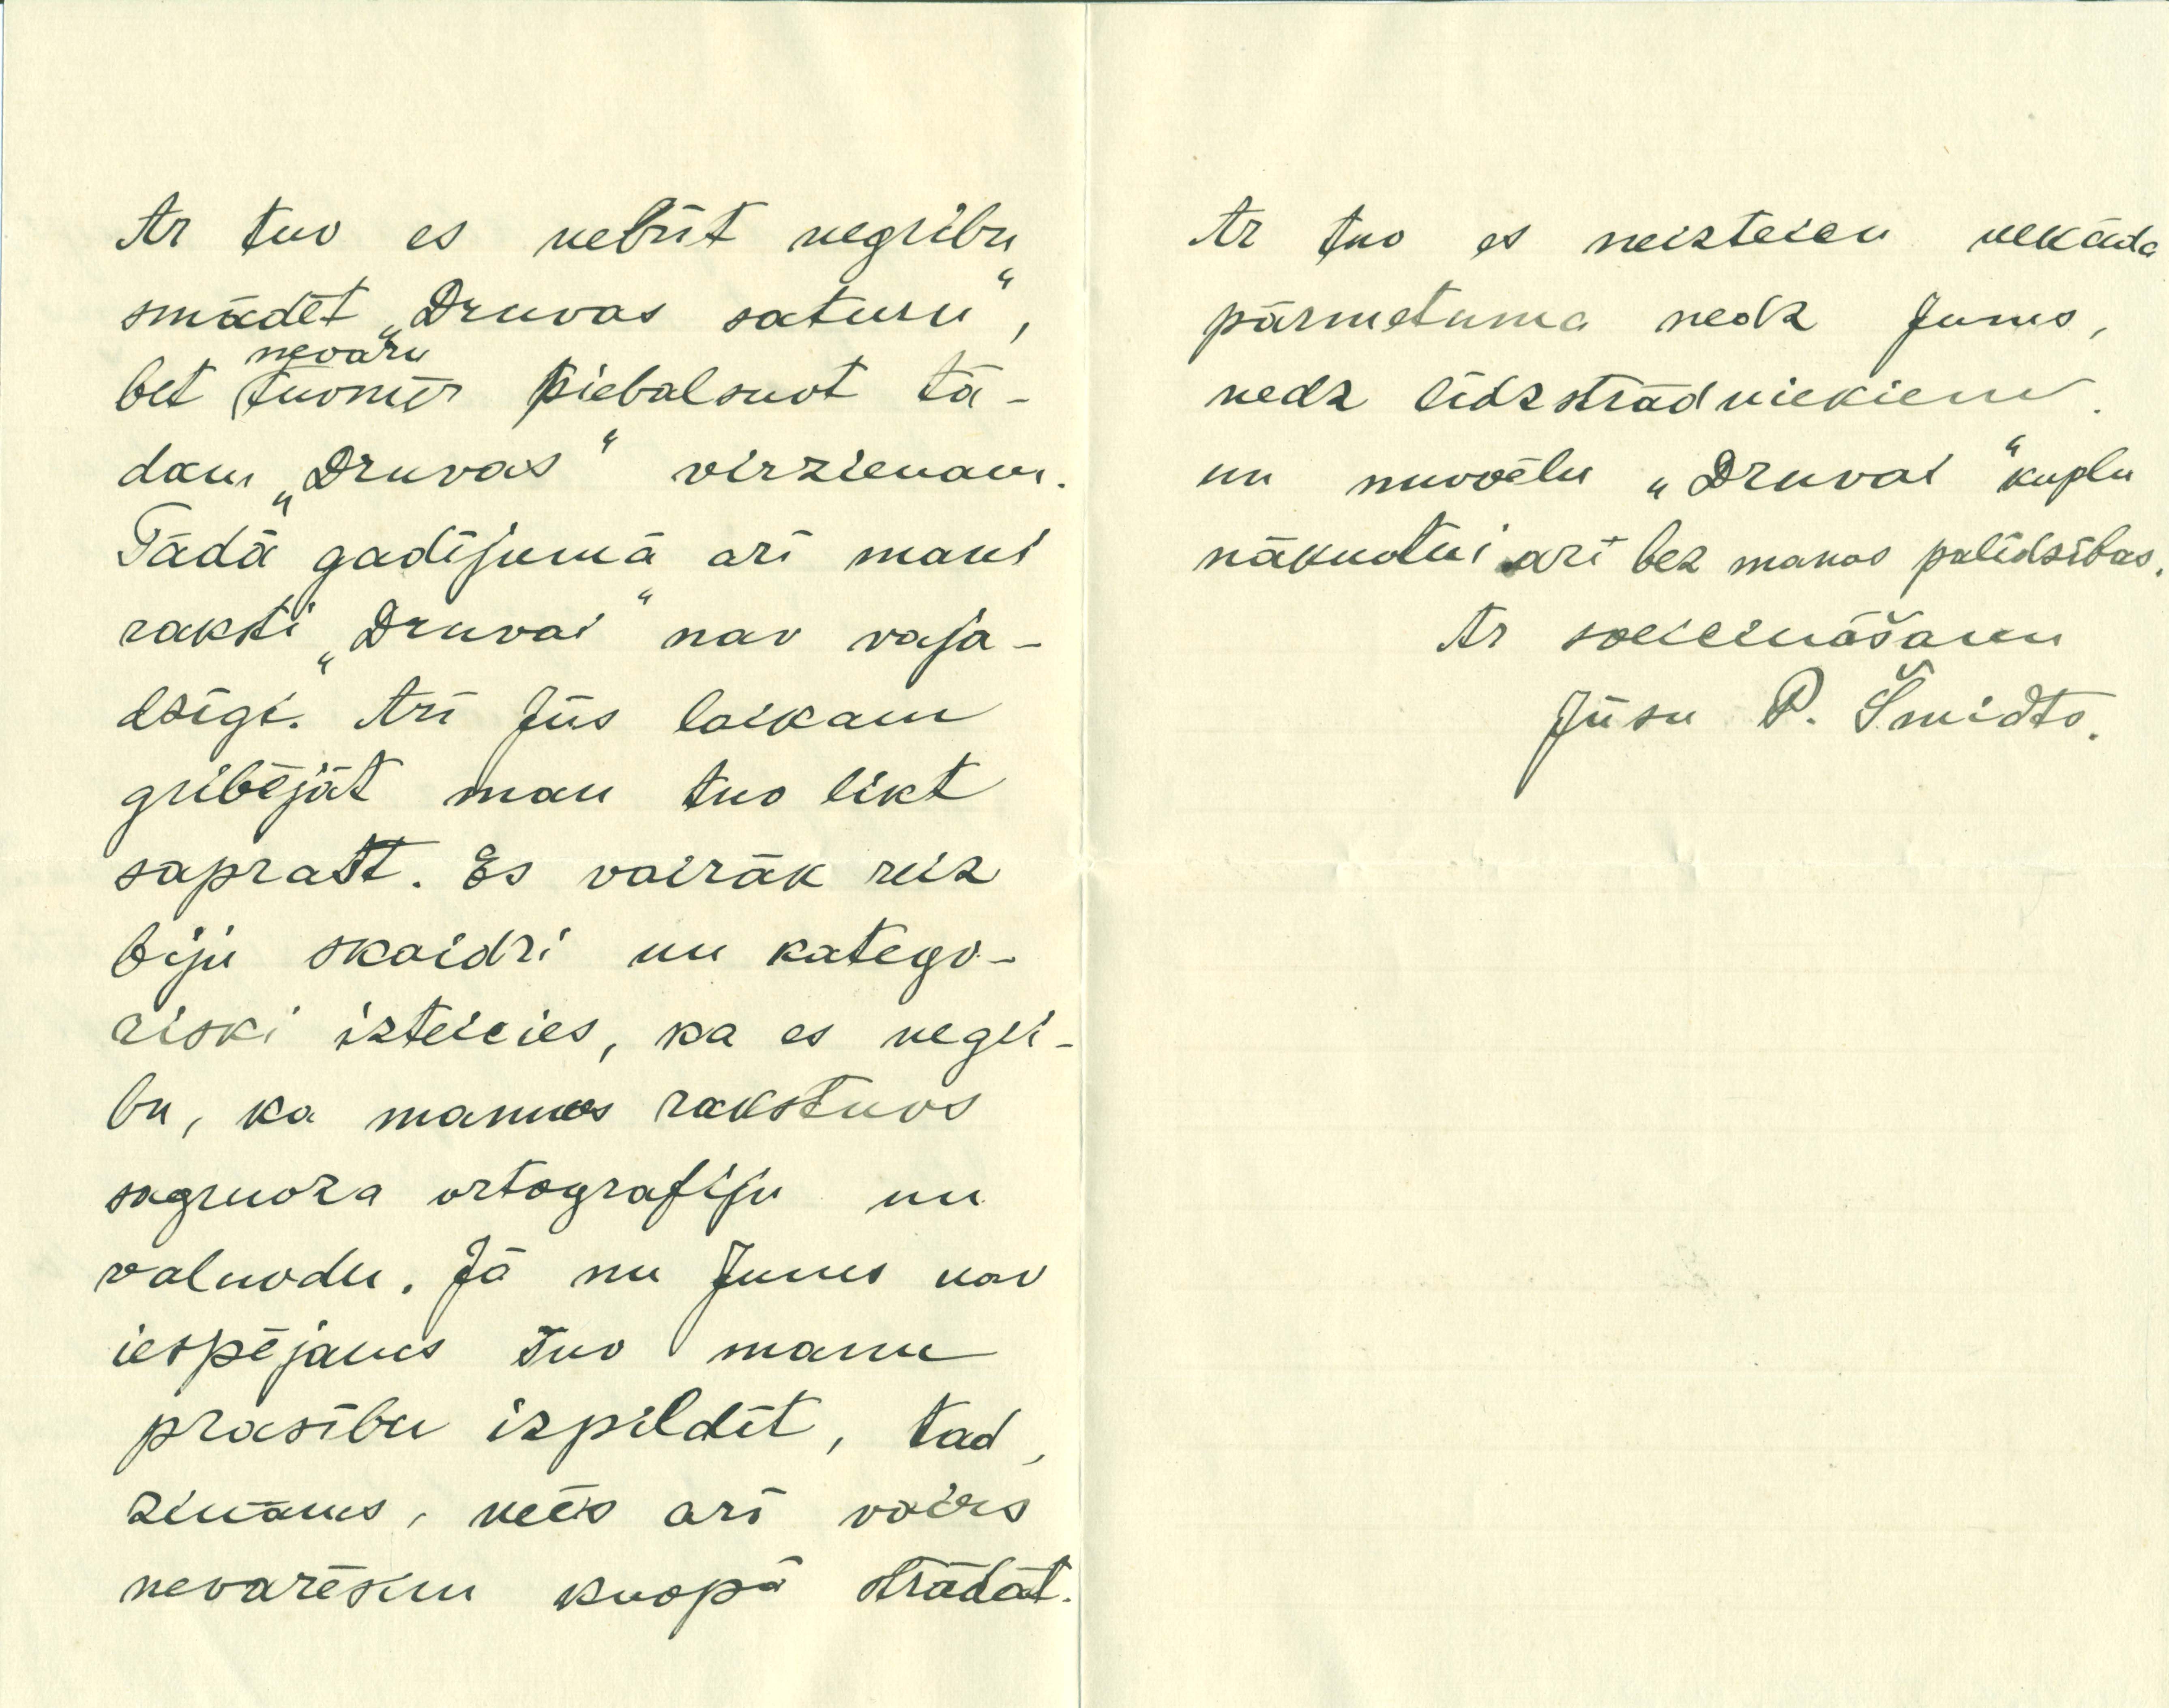 Ar tuo es nebūt negribu
smādēt „Druvas saturu“,
nevaru
bet tuomēr piebalsuot tā-
dam „Druvas“ virzienam.
Tādā gadījumā arī mani
raksti „Druvai“ nav vaja-
dzīgi. Arī Jūs laikam
gribējāt man tuo likt
saprast. Es vairāk reiz
biju skaidri un katego-
riski izteicies, ka es negri-
bu, ka manuos rakstuos
sagruoza ortografiju un
valuodu. Jā nu Jums nav
iespējams šuo manu
prasību izpildīt, tad,
zināms, mēs arī vairs
nevarēsim kuopā strādāt.
Ar tuo es neizteicu nekāda
pārmetuma nedz Jums,
nedz līdzstrādniekiem.
un nuovēlu „Druvai“ kuplu
nākuotni arī bez manas palīdzības.
Ar sveicināšanu
Jūsu P. Šmidts.